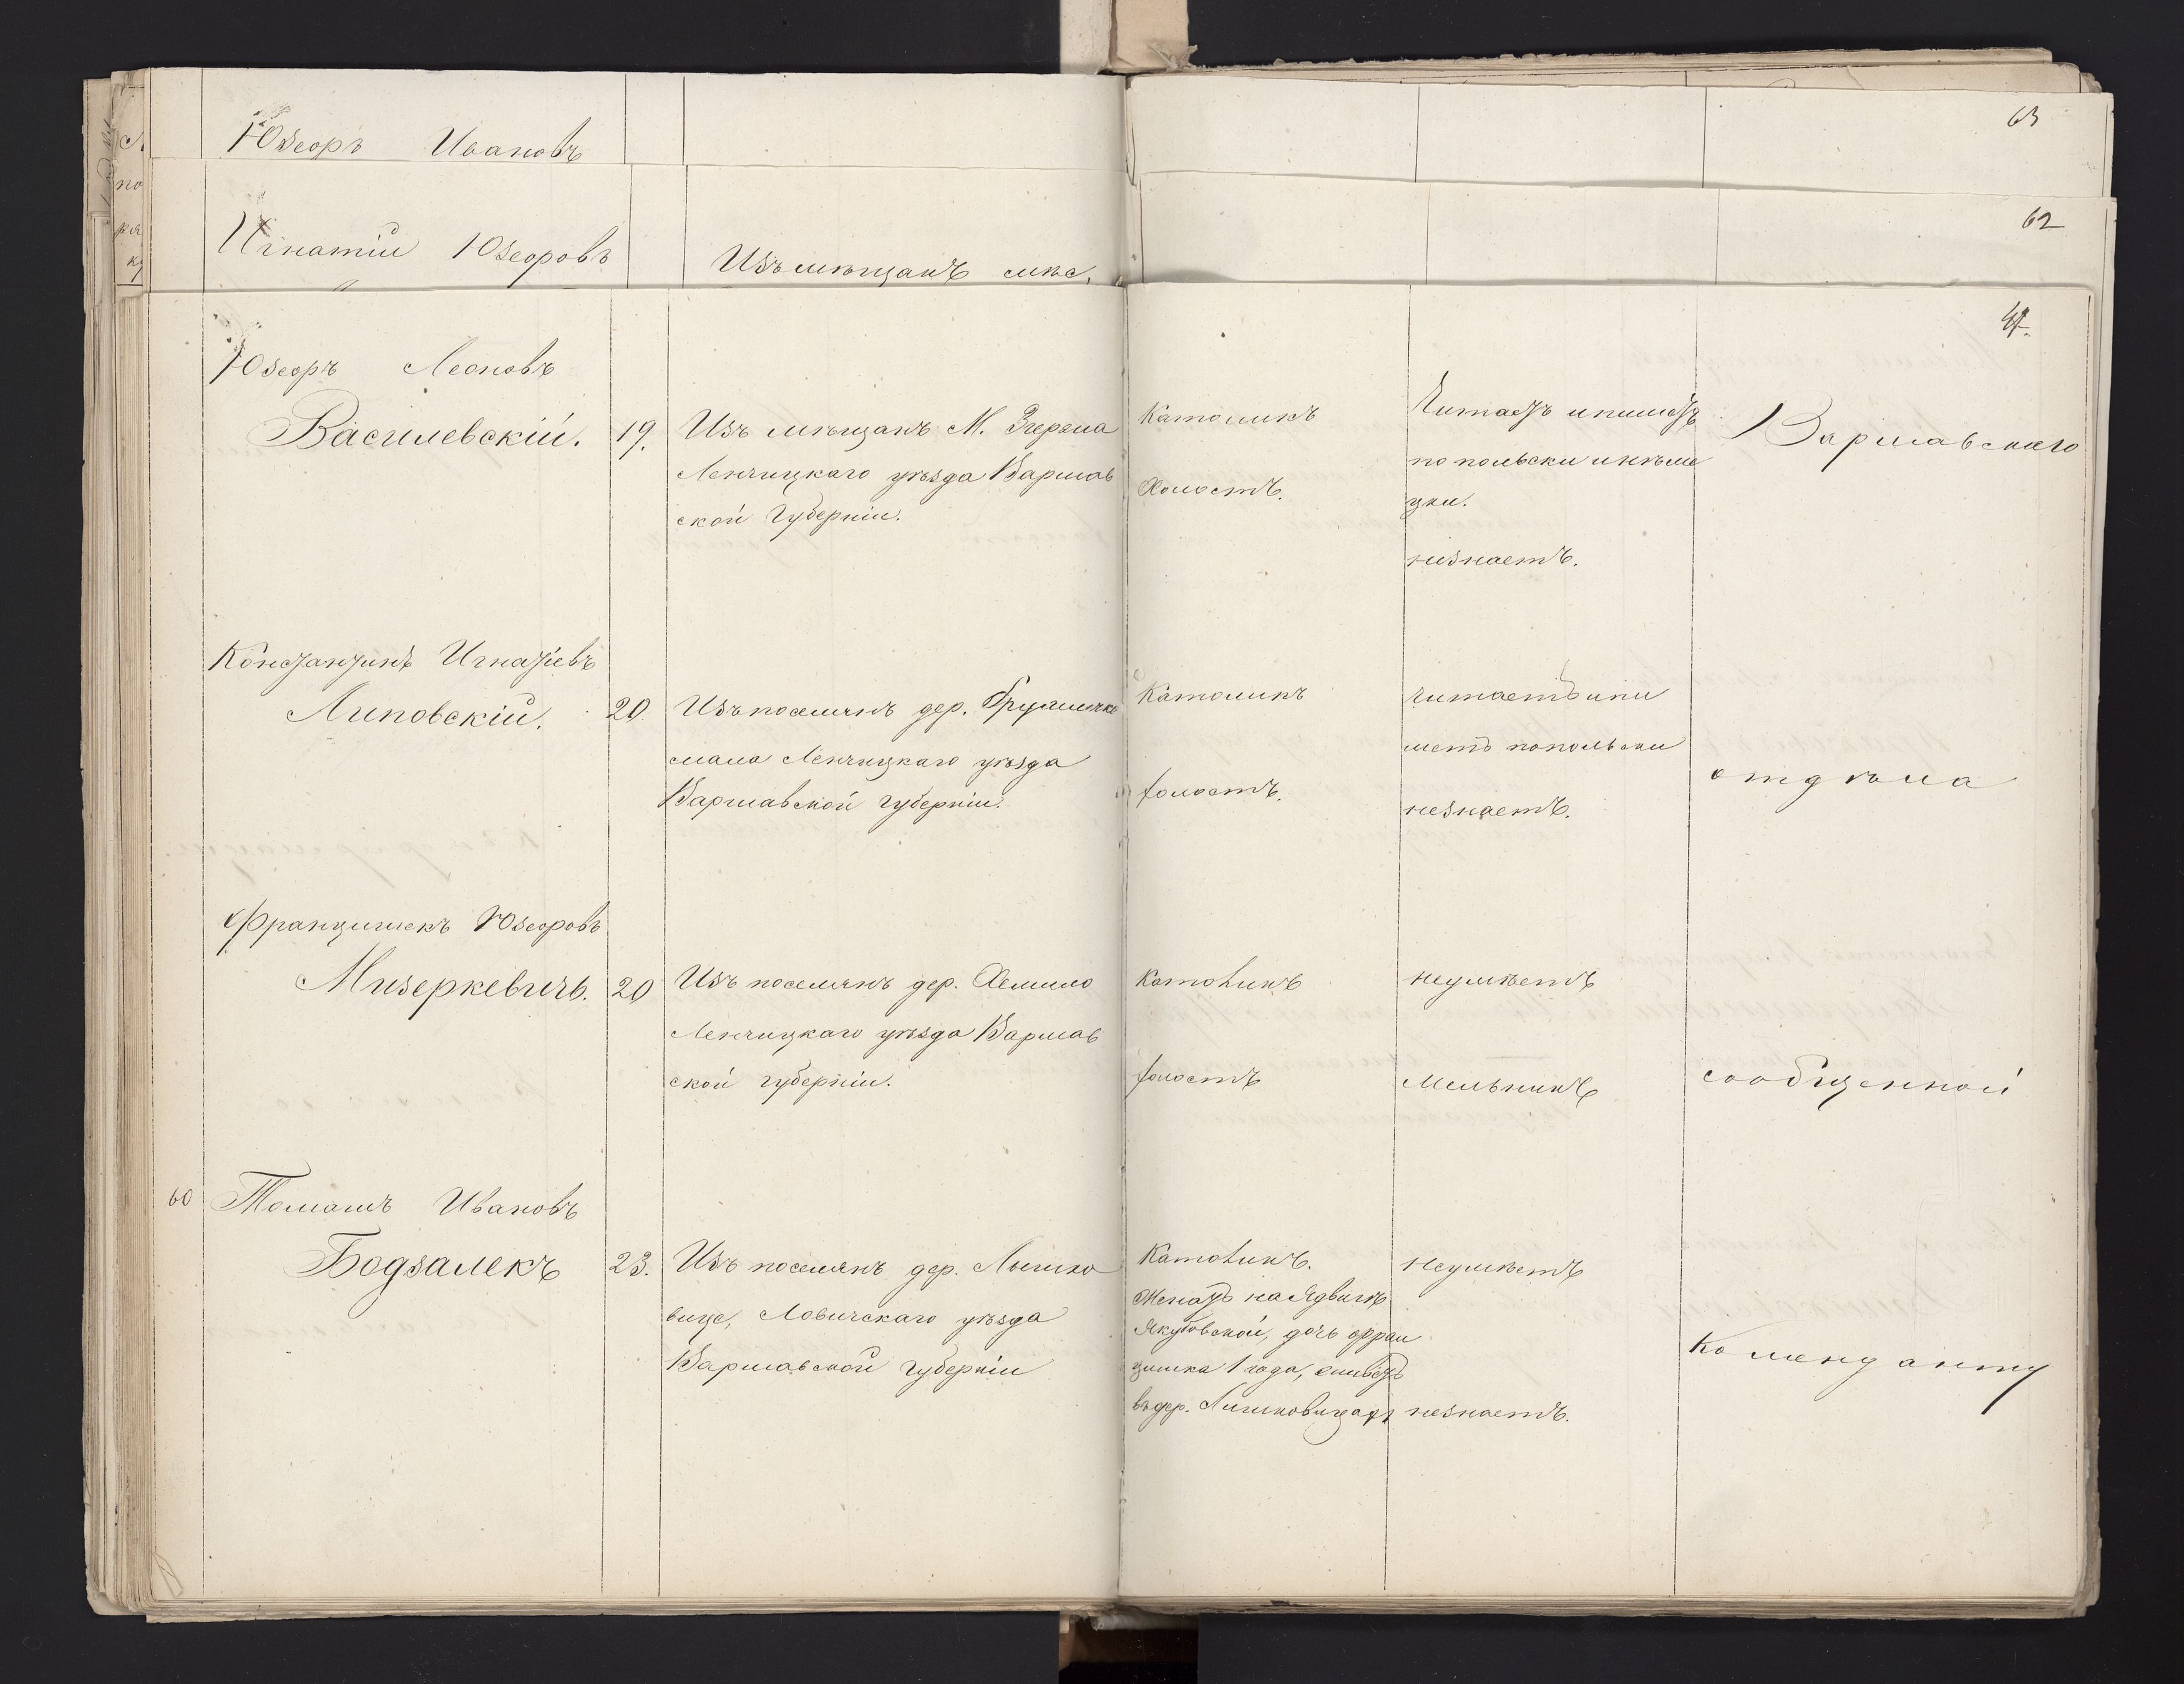 63
Юзефъ Ивановъ
62
Игнатій Юзефовъ
Изъ мѣщанъ мѣс.
Юзефъ Леоновъ
Василевскій. 19. Изъ мѣщанъ М. Згержа
Ленчицкаго уѣзда Варшав
ской Губерніи.
Католикъ
Холостъ.
Читаетъ и пишетъ
по польски и нѣме
цки.
незнаетъ.
Варшавскаго
Константинъ Игнатіевъ
Липовскій. 20. Изъ поселянъ дер.
мала Ленчицкаго уѣзда
Варшавской губерніи.
Католикъ
холостъ.
читаетъ и пи
шетъ попольски
незнаетъ.
отдѣла
Францишекъ Юзефовъ
Мизеркевичъ. 20 Изъ поселянъ дер.
Ленчицкаго уѣзда Варшав
ской губерніи.
Католикъ
холостъ
неумѣетъ
Мельникъ
сообщенной
60 Томашъ Ивановъ
Бодзалекъ 23. Изъ поселянъ дер. Лышко
вице, Ловичскаго уѣзда
Варшавской губерніи
Католикъ.
Женатъ на Ядвигѣ
Якубовской, дочь Фран
цишка 1 года,
въ дер. Лышковицахъ
неумѣетъ
незнаетъ.
Коменданту